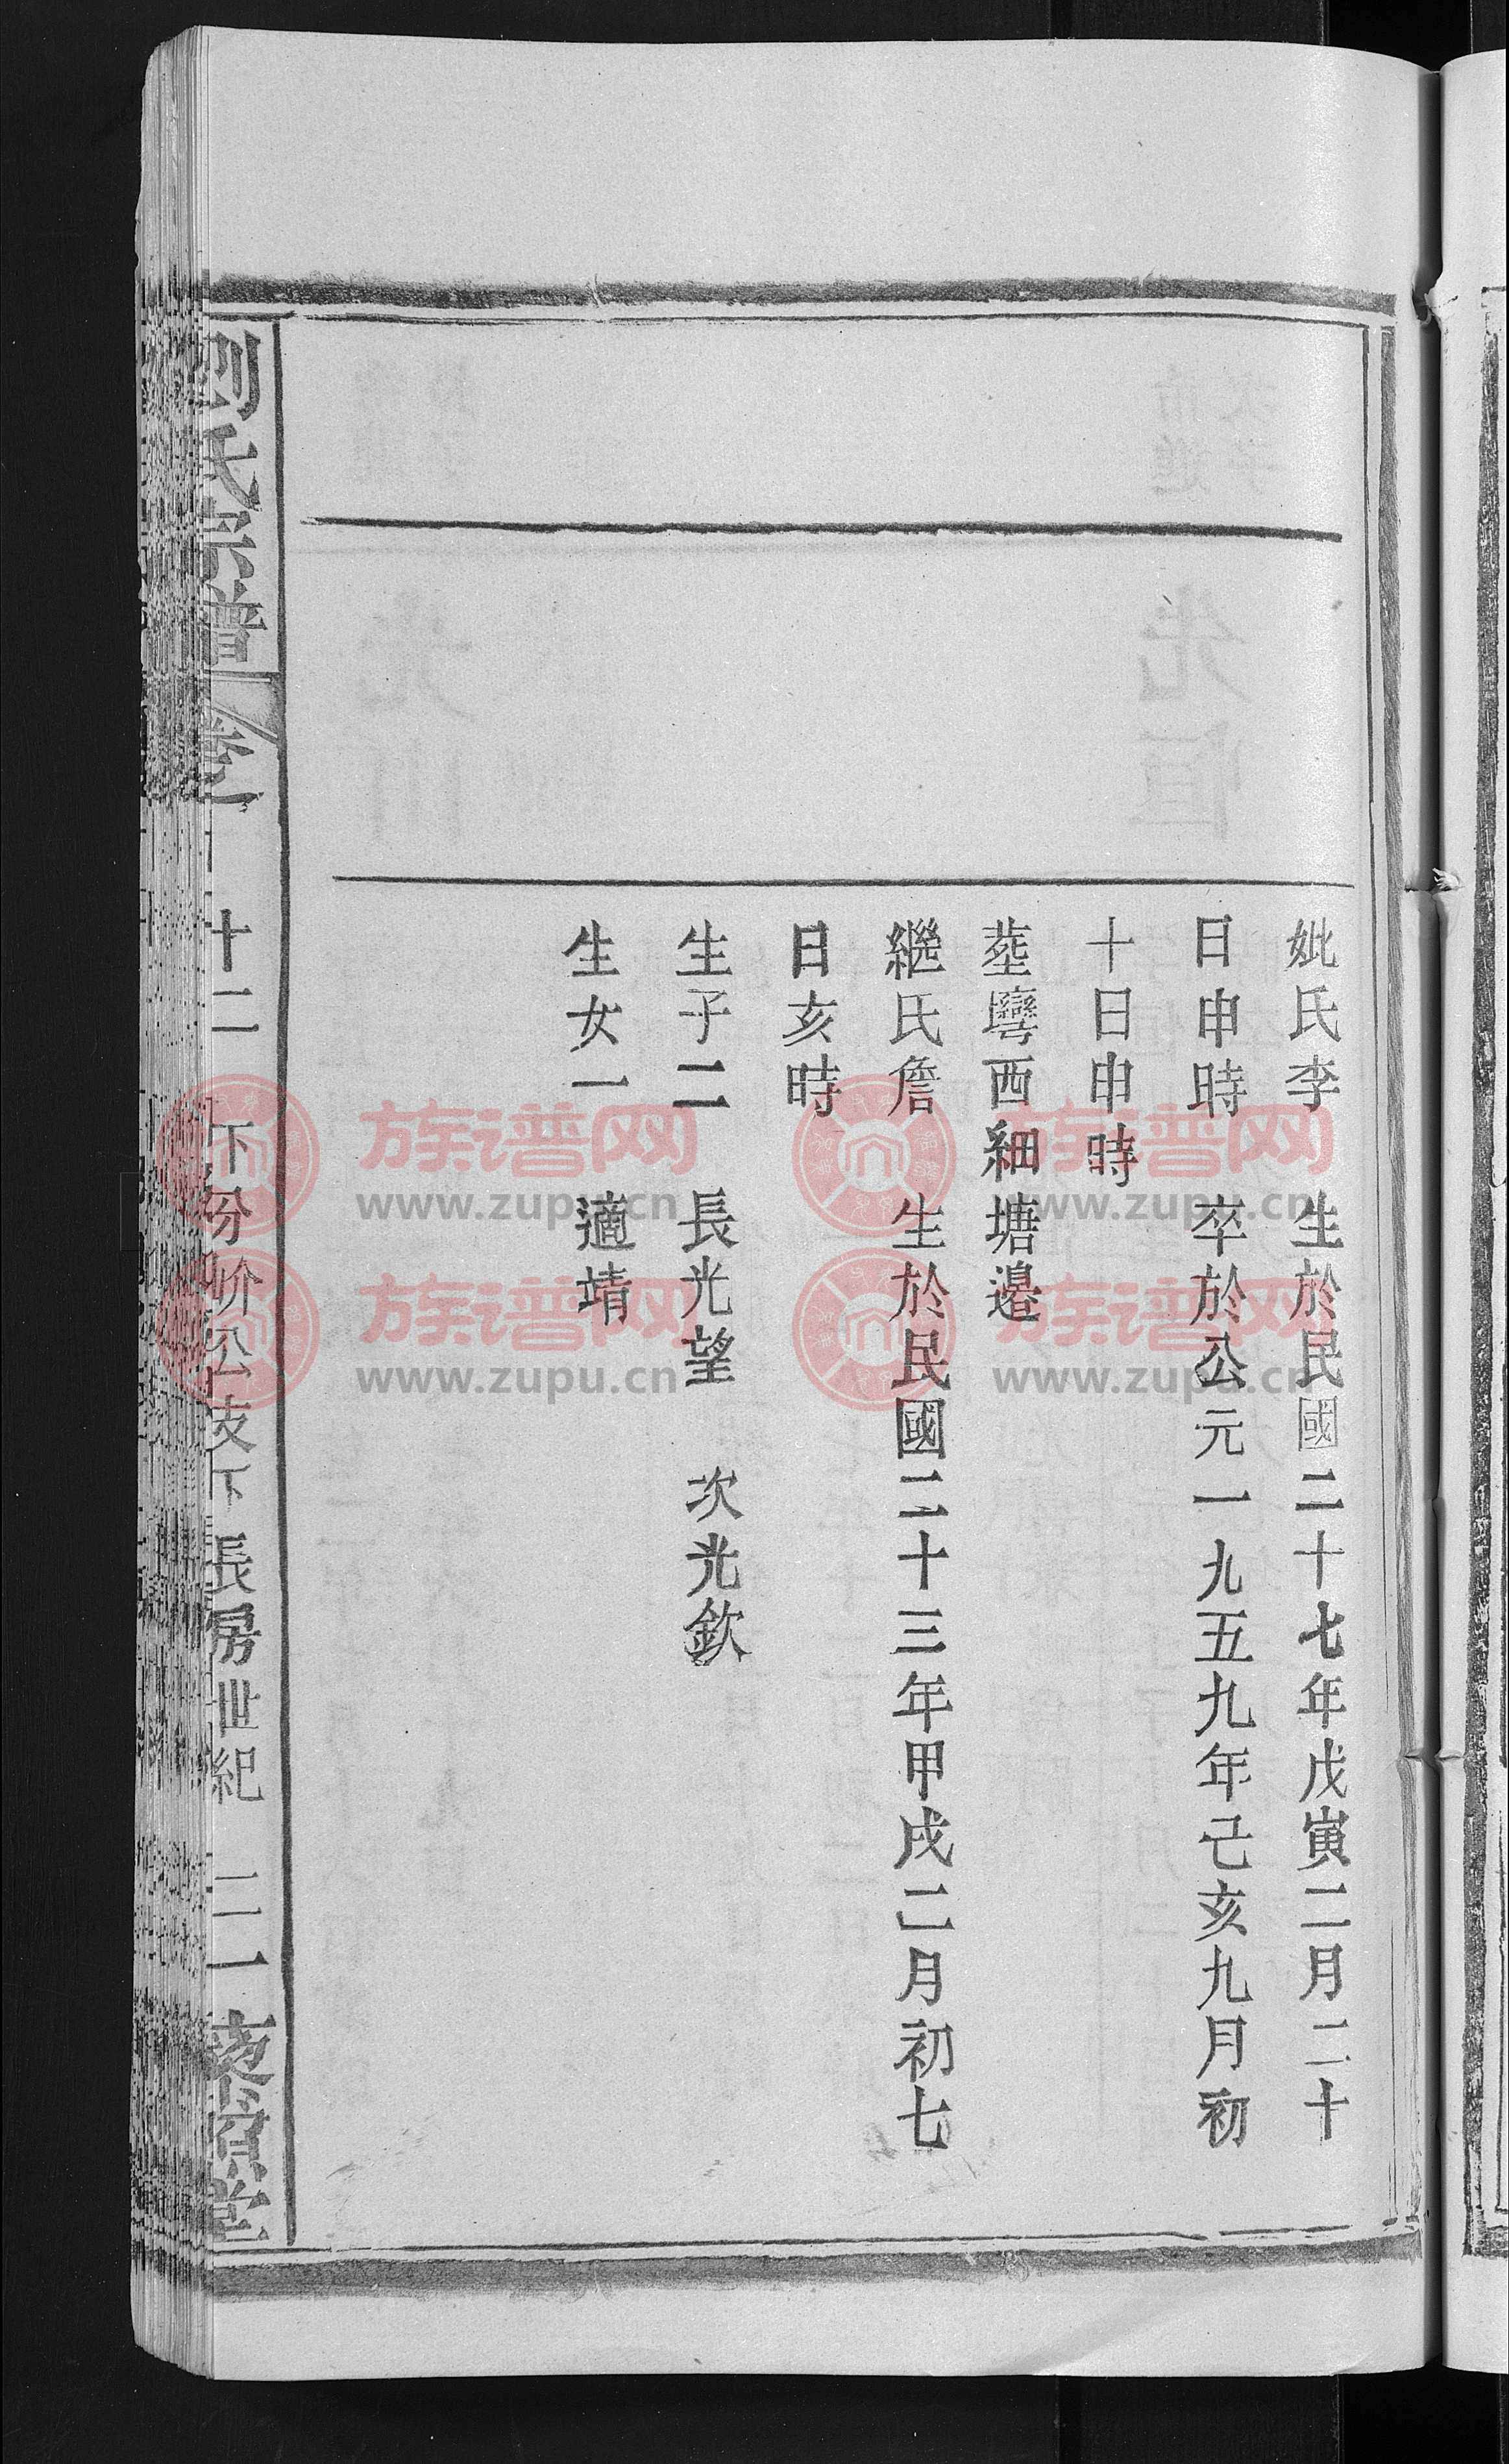 妣氏李 生於民國二十七年戊寅二月二十
日申時 卒於公元一九五九年己亥九月初
十日申時
塟壪西細塘邉
繼氏詹 生於民國二十三年甲戌二月初七
日亥時
生子二 長光望 次光欽
生女一 適靖
劉氏宗譜 卷一 十二 下分价公支下長房世紀 二一 堂
族谱网
www.zupu.cn
族谱网
www.zupu.cn
族谱网
www.zupu.cn
族谱网
www.zupu.cn